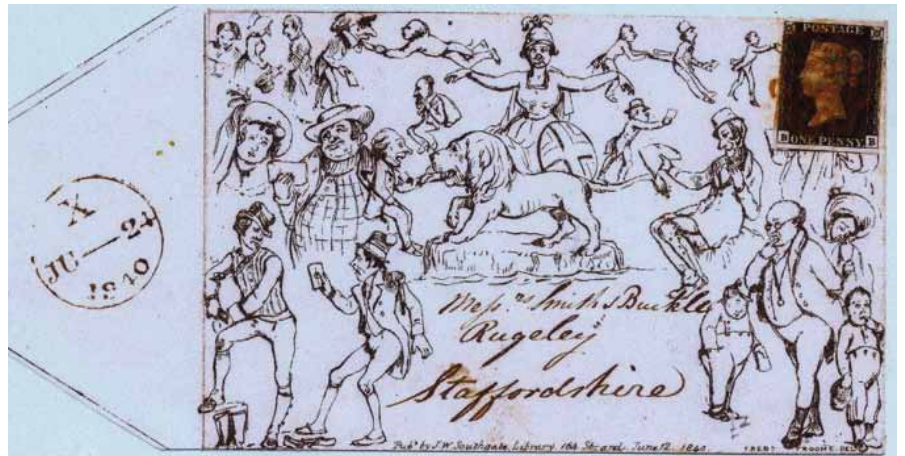 POSTAGE
ONE PENNY
B B
X
JU — 24
1840
Messrs Smith & Buckle
Rugeley
Staffordshire
Pubd by J.W. Southgate, Library, 164 Strand, June 12. 1840.